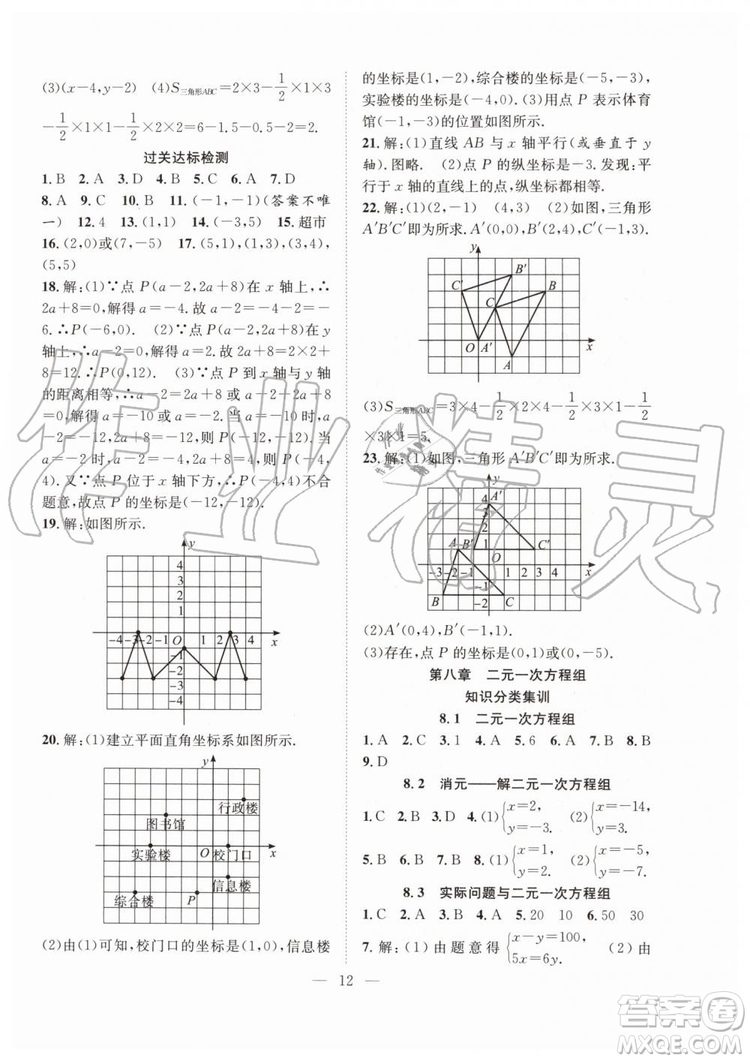 (3)(x-4,y-2) (4)S三角形ABC=2×3-1/2×1×3
-1/2×1×1-1/2×2×2=6-1.5-0.5-2=2.
过关达标检测
1.B 2.A 3.D 4.B 5.C 6.A 7.D
8.A 9.C 10.B 11.(-1,-1)(答案不唯
一) 12.4 13.(1,1) 14.(-3,5) 15.超市
16.(2,0)或(7,-5) 17.(5,1),(1,3),(3,4),
(5,5)
18.解:(1)∵点P(a-2,2a+8)在x轴上,∴
2a+8=0.解得a=-4.故a-2=-4-2=
-6.∴P(-6,0). (2)∵点P(a-2,2a+8)在y
轴上,∴a-2=0.解得a=2.故2a+8=2×2+
8=12.∴P(0,12). (3)∵点P到x轴与y轴
的距离相等,∴a-2=2a+8或a-2+2a+8
=0.解得a=-10或a=-2.当a=-10时,a-2
=-12,2a+8=-12,则P(-12,-12);当a
=-2时,a-2=-4,2a+8=4,则P(-4,
4).又∵点P位于x轴下方,∴P(-4,4)不合
题意,故点P的坐标是(-12,-12).
19.解:如图所示.
y
4
3
2
1
-4 -3 -2 -1 O 1 2 3 4 x
-1
-2
-3
-4
20.解:(1)建立平面直角坐标系如图所示.
y
行政楼
图书馆
实验楼 O 校门口 x
信息楼
综合楼 P
(2)由(1)可知,校门口的坐标是(1,0),信息楼
的坐标是(1,-2),综合楼的坐标是(-5,-3),
实验楼的坐标是(-4,0).(3)用点P表示体育
馆(-1,-3)的位置如图所示.
21.解:(1)直线AB与x轴平行(或垂直于y
轴).图略. (2)点P的纵坐标是-3.发现:平
行于x轴的直线上的点,纵坐标都相等.
22.解:(1)(2,-1) (4,3) (2)如图,三角形
A′B′C′即为所求.A′(0,0),B′(2,4),C′(-1,3).
y
B′
C′ B
C
O A′ x
A
(3)S三角形ABC=3×4-1/2×2×4-1/2×3×1-1/2
×3×1=5.
23.解:(1)如图,三角形A′B′C′即为所求.
y
4 A′
3
2
A B′ 1 C′
-3 -2 -1 O 1 2 3 4 x
B -2 C
(2)A′(0,4),B′(-1,1).
(3)存在,点P的坐标是(0,1)或(0,-5).
第八章 二元一次方程组
知识分类集训
8.1 二元一次方程组
1.A 2.C 3.A 4.A 5.6 6.A 7.D 8.A
9.D
8.2 消元——解二元一次方程组
1.C 2.B 3.D 4.(1){x=2, y=-3. (2){x=-14, y=-3.
5.B 6.B 7.B 8.(1){x=2, y=1. (2){x=3, y=2.
8.3 实际问题与二元一次方程组
1.C 2.D 3.A 4.D 5.20 10 6.50 30
7.解:(1)由题意得{x-y=100, 5x=6y. (2)由
12
作业精灵
答案圈
MXQE.COM